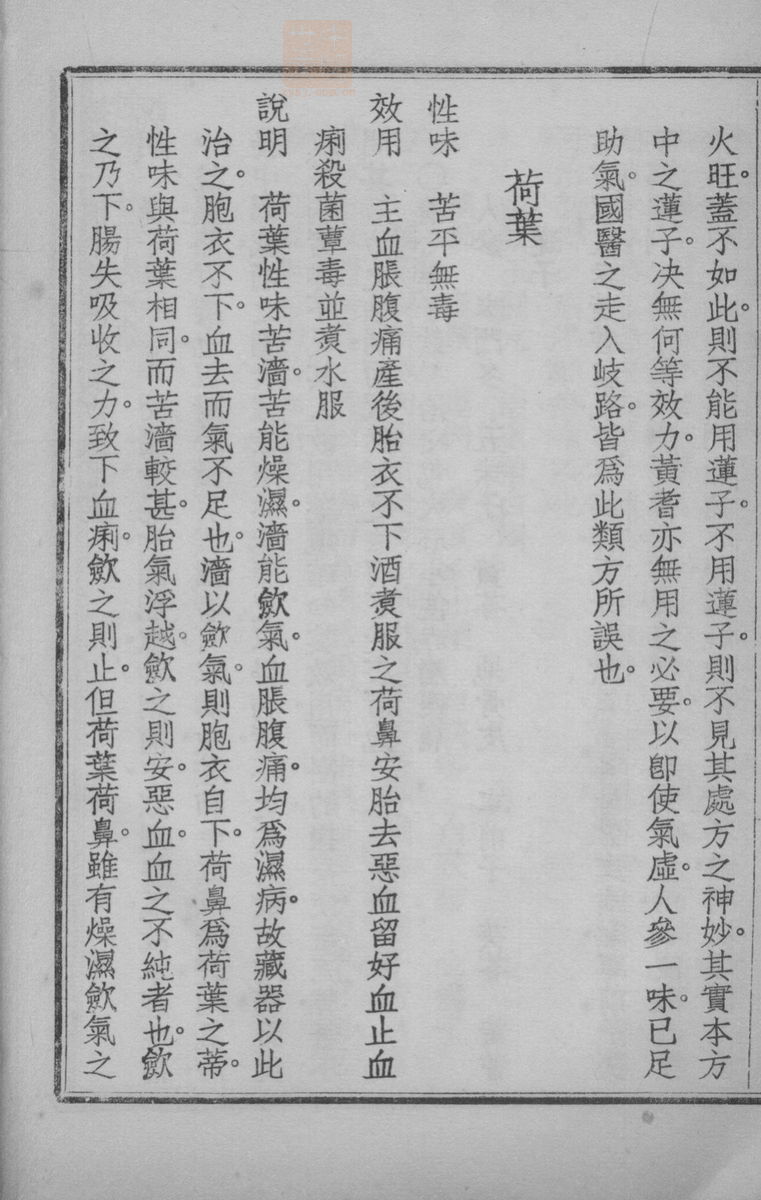 火旺。蓋不如此。則不能用蓮子。不用蓮子。則不見其處方之神妙。其實本方
中之蓮子。決無何等效力。黃耆亦無用之必要。以卽使氣虛。人參一味。已足
助氣。國醫之走入岐路。皆爲此類方所誤也。
荷葉
性味　苦平無毒
效用　主血脹腹痛產後胎衣不下酒煑服之荷鼻安胎去惡血留好血止血
痢殺菌蕈毒並煑水服
說明　荷葉性味苦濇。苦能燥濕。濇能歛氣。血脹腹痛。均爲濕病。故藏器以此
治之。胞衣不下。血去而氣不足也。濇以歛氣。則胞衣自下。荷鼻爲荷葉之蒂。
性味與荷葉相同。而苦濇較甚。胎氣浮越。歛之則安。惡血。血之不純者也。歛
之乃下。腸失吸收之力。致下血痢。歛之則止。但荷葉荷鼻。雖有燥濕歛氣之